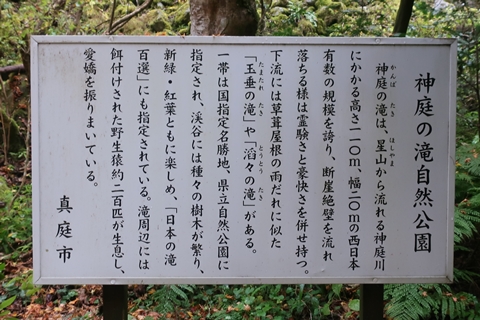 神庭の滝自然公園
神庭の滝は、星山から流れる神庭川
かんば たき ほしやま
にかかる高さ一一〇m、幅二〇mの西日本
有数の規模を誇り、断崖絶壁を流れ
落ちる様は霊験さと豪快さを併せ持つ。
下流には草葺屋根の雨だれに似た
「玉垂の滝」や「滔々の滝」がある。
たまたれ たき とうとう たき
一帯は国指定名勝地、県立自然公園に
指定され、渓谷には種々の樹木が繁り、
新緑・紅葉ともに楽しめ、「日本の滝
百選」にも指定されている。滝周辺には
餌付けされた野生猿約二百匹が生息し、
愛嬌を振りまいている。
真庭市